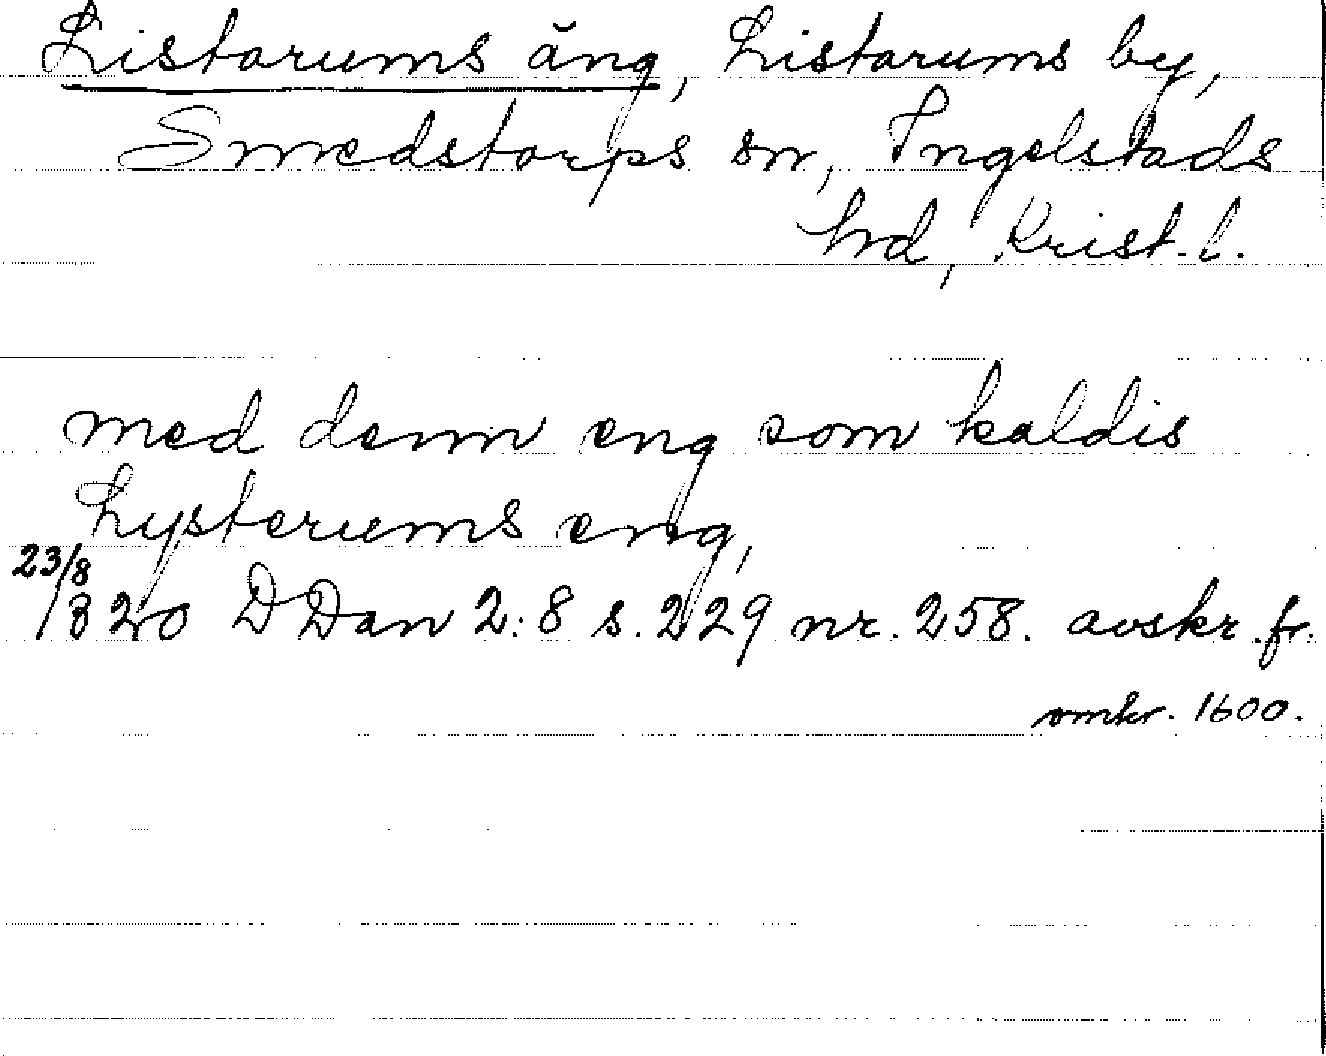 Listarums äng, Listarums by,
Smedstorps sn, Ingelstads
hrd, Krist. l.
med denn eng som kaldis
Lysterums eng,
23/8
1320 DDan 2:8 s. 229 nr. 258. avskr. fr.
omkr. 1600.